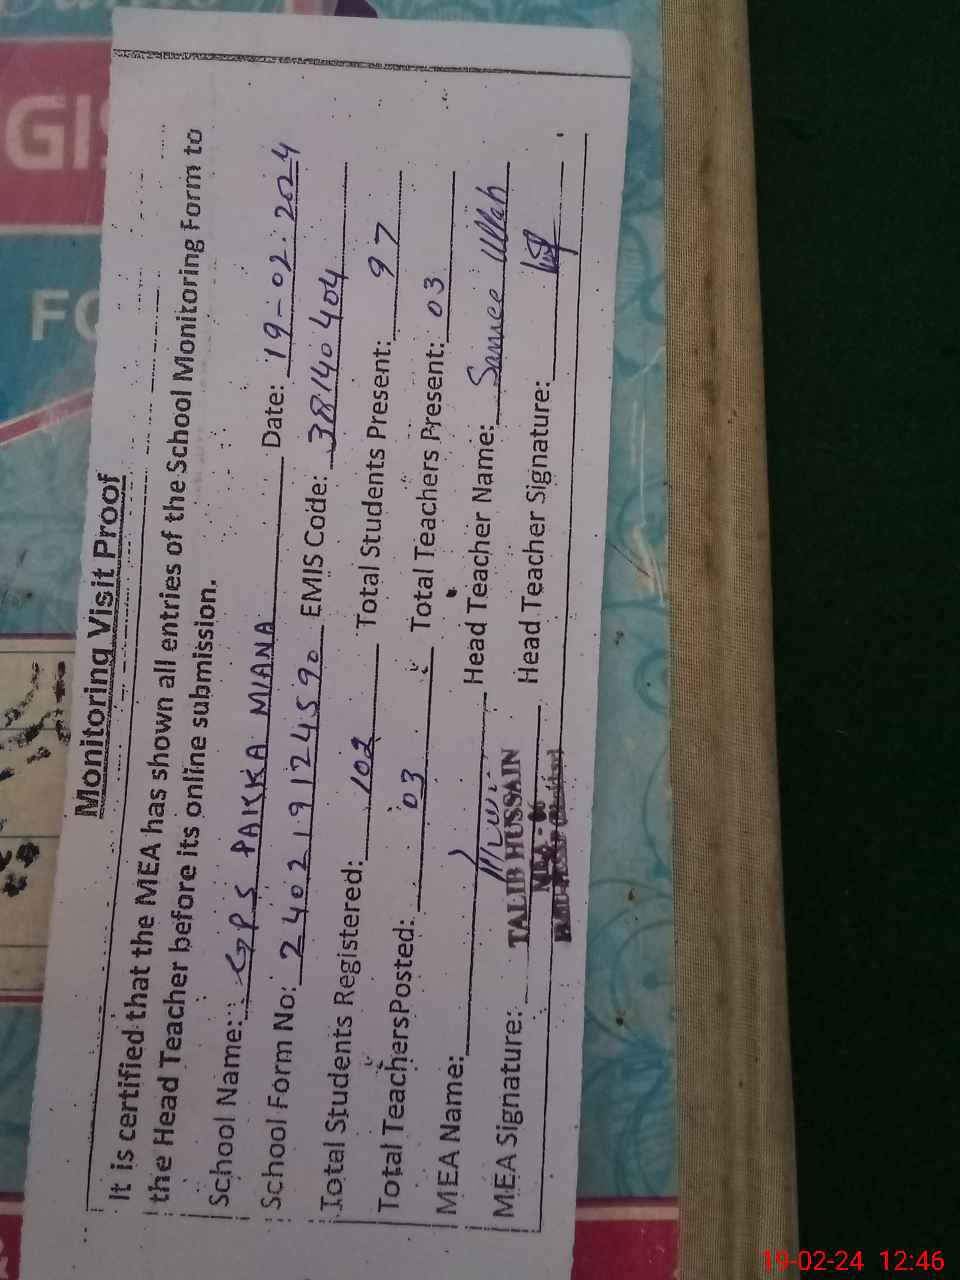 GIS
FO
Monitoring Visit Proof
It is certified that the MEA has shown all entries of the School Monitoring Form to
the Head Teacher before its online submission.
School Name: GPS PAKKA MIANA Date: 19-02-2024
School Form No: 2402191124590 EMIS Code: 38140404
Total Students Registered: 102 Total Students Present: 97
Total Teachers Posted: 03 Total Teachers Present: 03
MEA Name: Head Teacher Name: Samee Ullah
MEA Signature: Head Teacher Signature:
TALIB HUSSAIN
19-02-24 12:46